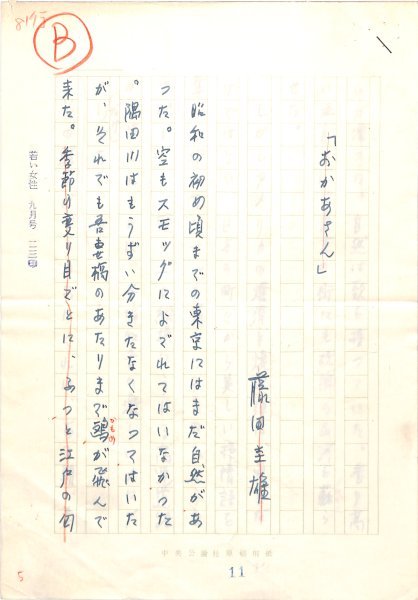 「おかあさん」
藤田圭雄
昭和の初め頃までの東京にはまだ自然があ
つた。空もスモッグによごれてはいなかった
。隅田川はもうずい分きたなくなつてはいた
が、それでも吾妻橋のあたりまで鷗が飛んで
かもめ
来た。季節の変り目ごとに、ふつと江戸の匂
若い女性 九月号
B
中央公論社原稿用紙
11
5